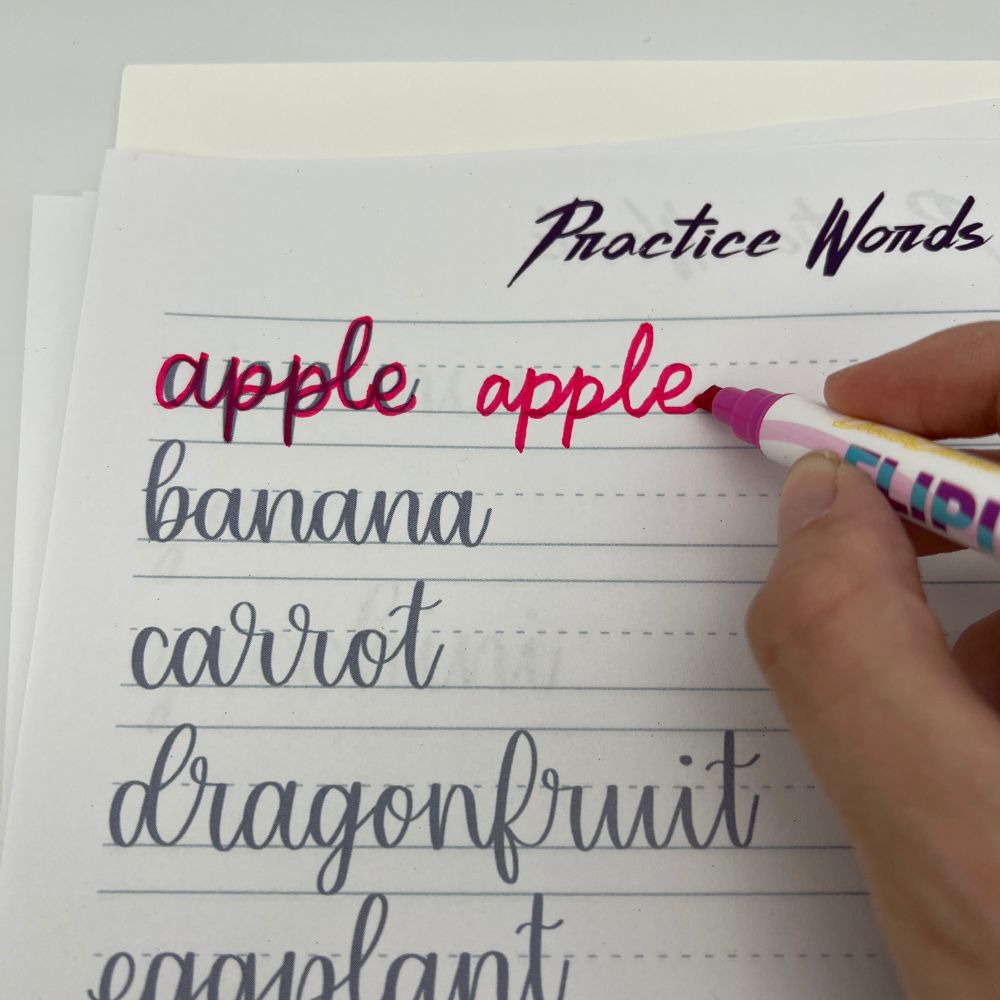 Practice Words
apple apple
banana
carrot
dragonfruit
eggplant